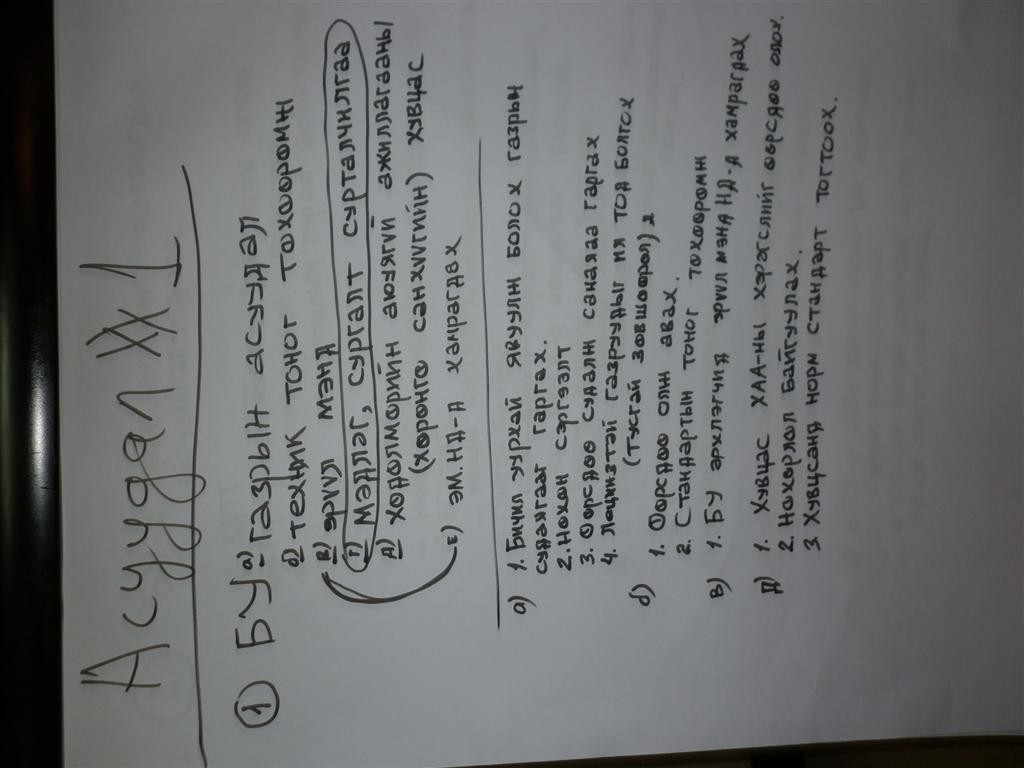 Асуудал XX 1
① БУ а) газрын асуудал
б) техник тоног төхөөрөмж
в) эрүүл мэнд
г) мэдлэг, сургалт сурталчилгаа
д) хөдөлмөрийн аюулгүй ажиллагааны
(хөрөнгө санхүүгийн) хувцас
е) ЭМ.НД-д хамрагдах
а) 1. Бичил уурхай явуулж болох газрын
судалгааг гаргах.
2. Нөхөн сэргээлт
3. Өөрсдөө судалж саналаа гаргах
4. Лицинзтэй газруудыг ил тод болгох
(тусгай зөвшөөрөл)
б) 1. Өөрсдөө олж авах.
2. Стандартын тоног төхөөрөмж
в) 1. Бу эрхлэгчид эрүүл мэнд НД-д хамрагдах
д) 1. Хувцас ХАА-ны хэрэгслийг өөрсдөө олох.
2. Нөхөрлөл байгуулах.
3. Хувцсанд норм стандарт тогтоох.